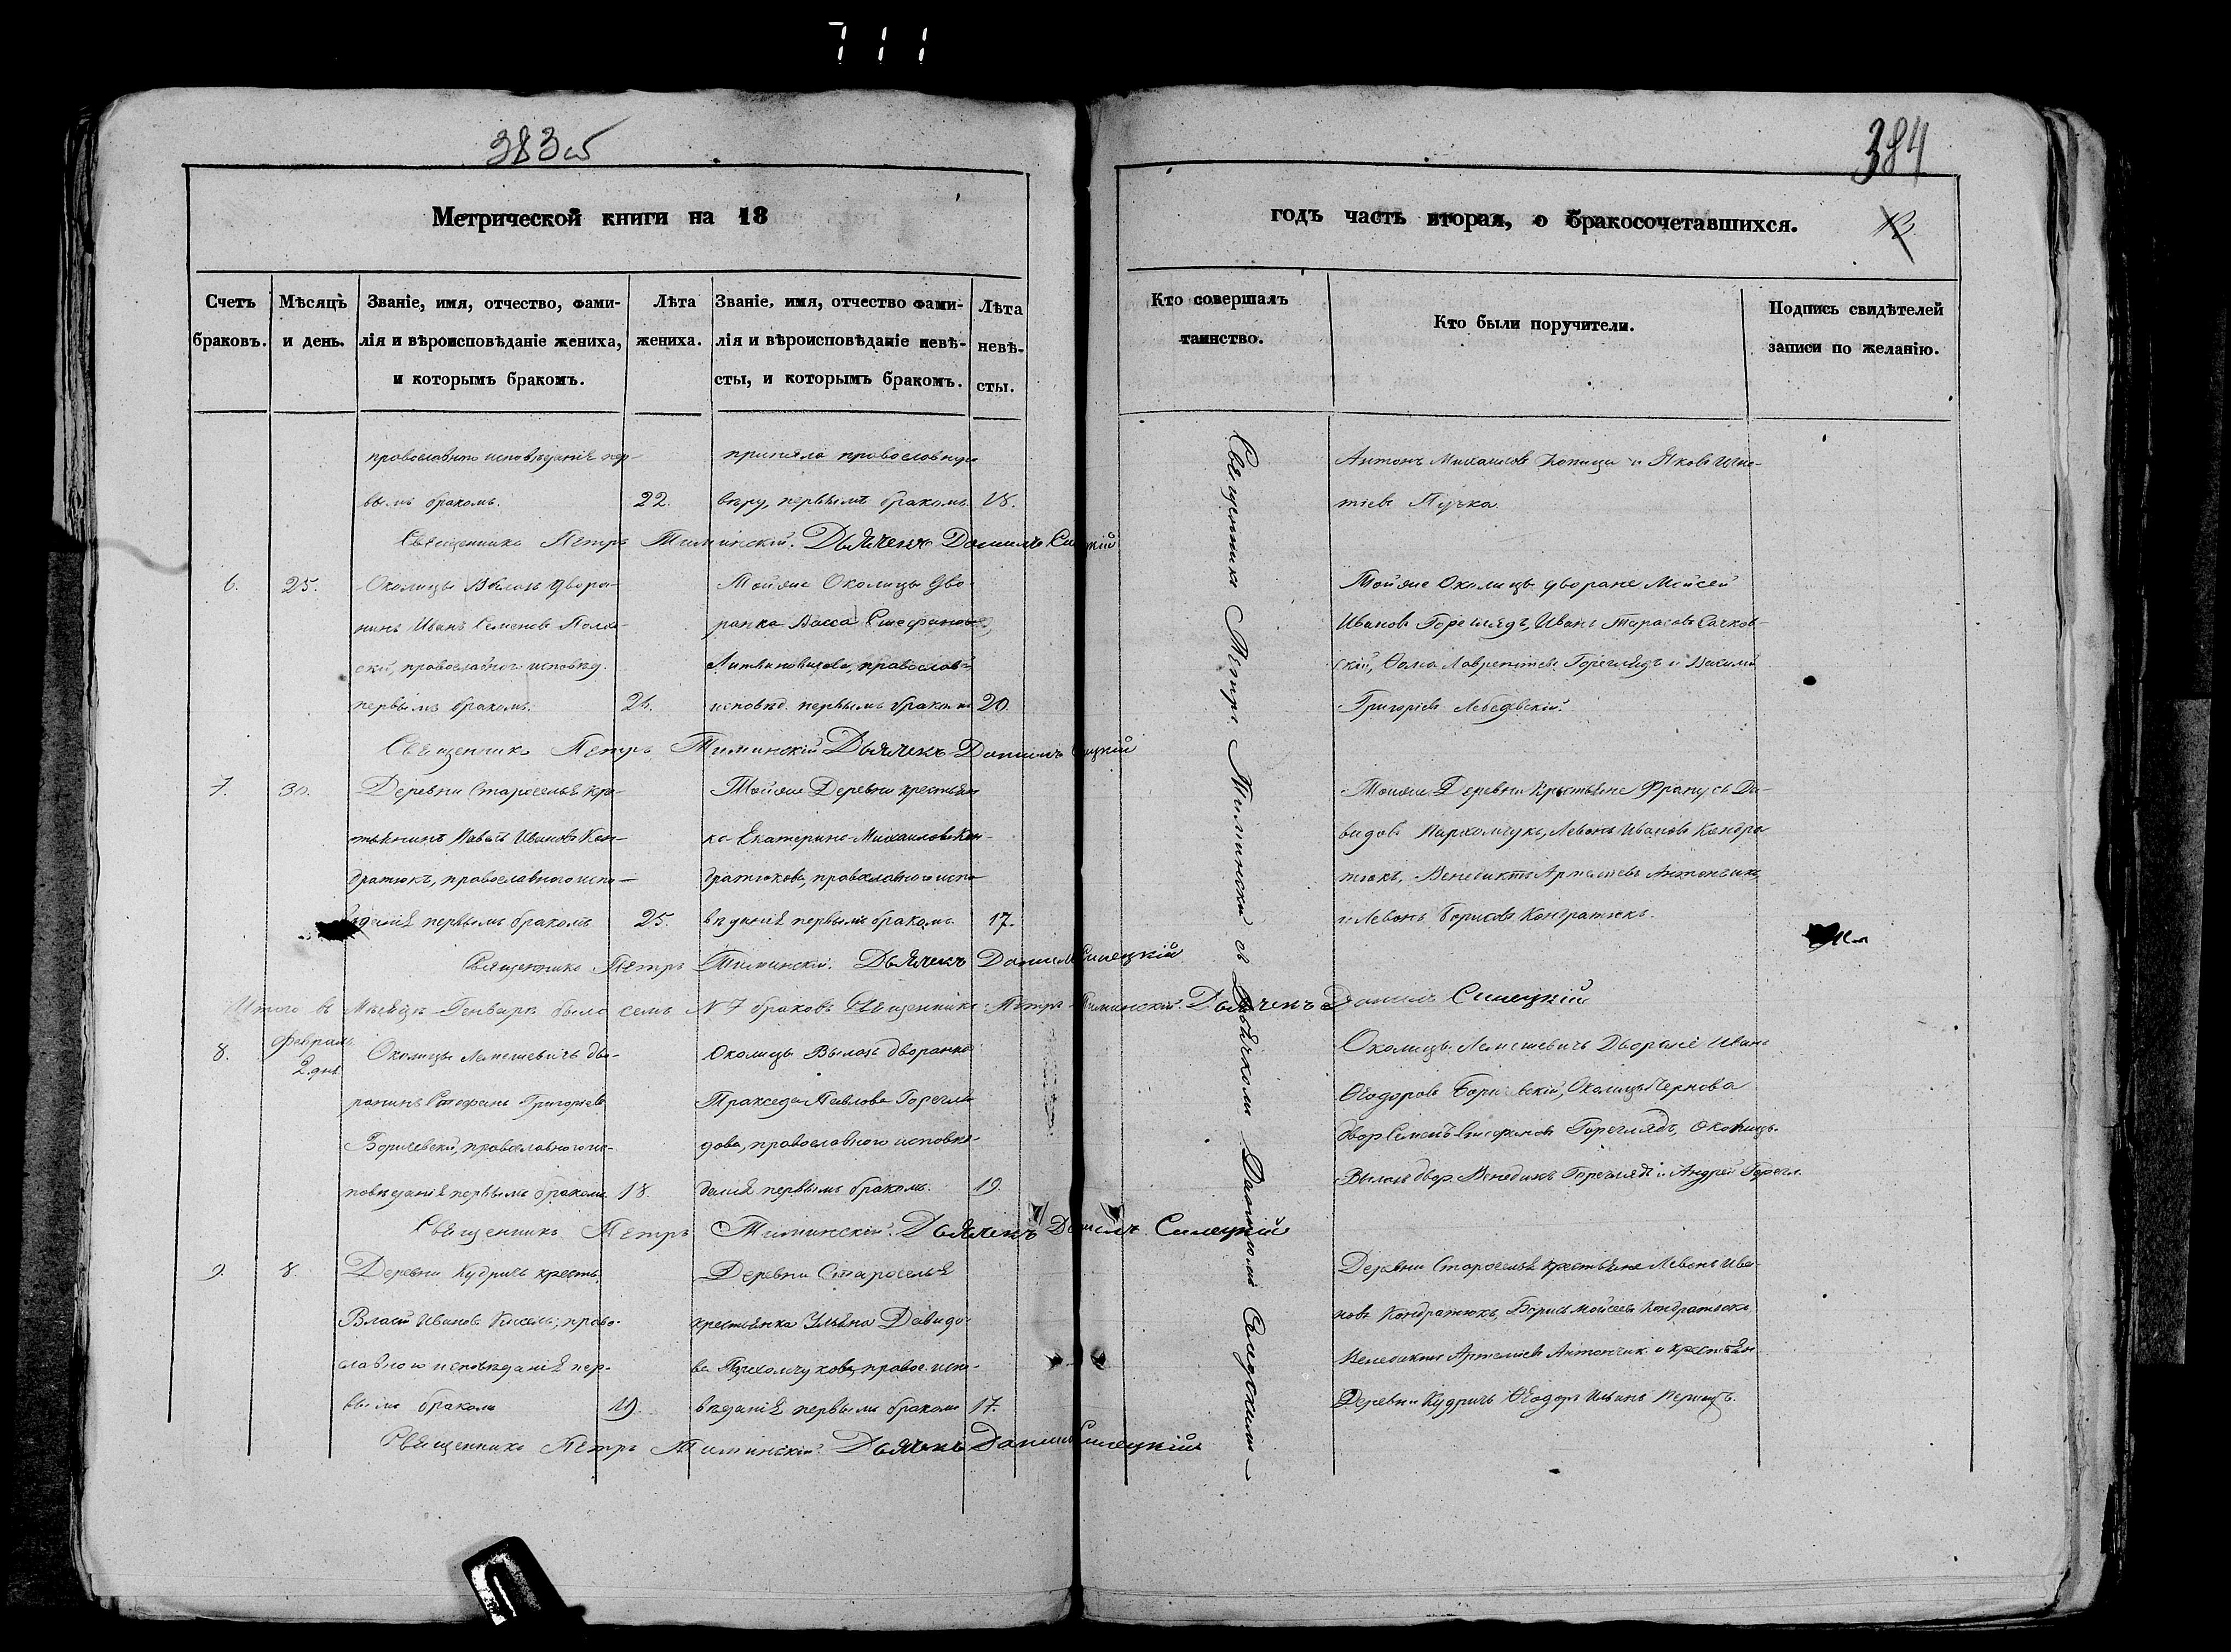 711
383об
384
Метрической книги на 18
годъ часть вторая, о бракосочетавшихся.
Счетъ браковъ.
Мѣсяцъ и день.
Званіе, имя, отчество, фами-
лія и вѣроисповѣданіе жениха,
и которымъ бракомъ.
Лѣта жениха.
Званіе, имя, отчество фами-
лія и вѣроисповѣданіе невѣ-
сты, и которымъ бракомъ.
Лѣта невѣ-
сты.
Кто совершалъ
таинство.
Кто были поручители.
Подпись свидѣтелей
записи по желанію.
православнаго исповѣданія пер-
вымъ бракомъ. 22.
приняла православную
вѣру, первымъ бракомъ. 18.
Антонъ Михаиловъ и Яковъ Игна-
тіевъ Пучка.
Священникъ Петръ Тиминскій. Дьячекъ Даниилъ
6. 25.
Околицы Вылазъ дворя-
нинъ Иванъ Семеновъ
православнаго исповѣд.
первымъ бракомъ.
Тойже Околицы дво-
рянка Васса Стефанова
православн.
исповѣд. первымъ бракомъ 20.
Тойже Околицы дворяне Моисей
Ивановъ Гореглядъ, Иванъ Тарасовъ Сачков-
скій, Ѳома Лаврентіевъ Гореглядъ и
Григоріевъ Лебедевскій.
Священникъ Петръ Тиминскій Дьячекъ Даниилъ
7. 30.
Деревни Староселья кре-
стьянинъ Ивановъ Кон-
дратюкъ, православнаго испо-
вѣданія первымъ бракомъ 25.
Тойже Деревни крестьян
ка Екатерина Михаилова Кон-
дратюкова, православнаго испо-
вѣданія первымъ бракомъ. 17.
Тойже Деревни Крестьяне Францъ Да-
видовъ Пархомчукъ, Левонъ Ивановъ Кондра
тюкъ, Венедиктъ Артеміевъ Антончикъ,
и Левонъ Борисовъ Кондратюкъ.
Священникъ Петръ Тиминскій. Дьячекъ Даниилъ Силецкій
Итого въ Мѣсяцѣ Генварѣ было семь N 7 браковъ Священникъ Петръ Тиминскій. Дьячекъ Даниилъ Силецкій
8. Февраль
2. дня
Околицы Лемешевичъ дво-
рянинъ Стефанъ Григоріевъ
Борисевскій, православнаго ис-
повѣданія первымъ бракомъ 18.
Околицы Вылазъ дворянка
Праксида Павлова Горегля
дова, православнаго исповѣ-
данія первымъ бракомъ. 19.
Околицы Лемешевичъ Дворяне Иванъ
Ѳеодоровъ Борисевскій, Околицы Чернова
двор. Семенъ Стефановъ Гореглядъ, Околицъ.
Вылазъ двор. Венедиктъ Гореглядъ и Андрей Горегл.
Священникъ Петръ Тиминскій. Дьячекъ Даниилъ Силецкій
9. 8.
Деревни Кудричъ крестьян.
Власій Ивановъ Кисель, право-
славнаго исповѣданія пер-
вымъ бракомъ 19.
Деревни Староселья
крестьянка Ульяна Давидо-
ва Пархомчукова, правос. испо-
вѣданія первымъ бракомъ 17.
Деревни Староселья крестьяне Левонъ Ива-
новъ Кондратюкъ, Борисъ Моисеевъ Кондратюкъ
Венедиктъ Артеміевъ Антончикъ и крестьян
Деревни Кудричъ Ѳеодоръ Ильинъ
Священникъ Петръ Тиминскій. Дьячекъ Даниилъ Силецкій
Священникъ Петръ Тиминскій съ Дьячкомъ Данииломъ Силецкимъ